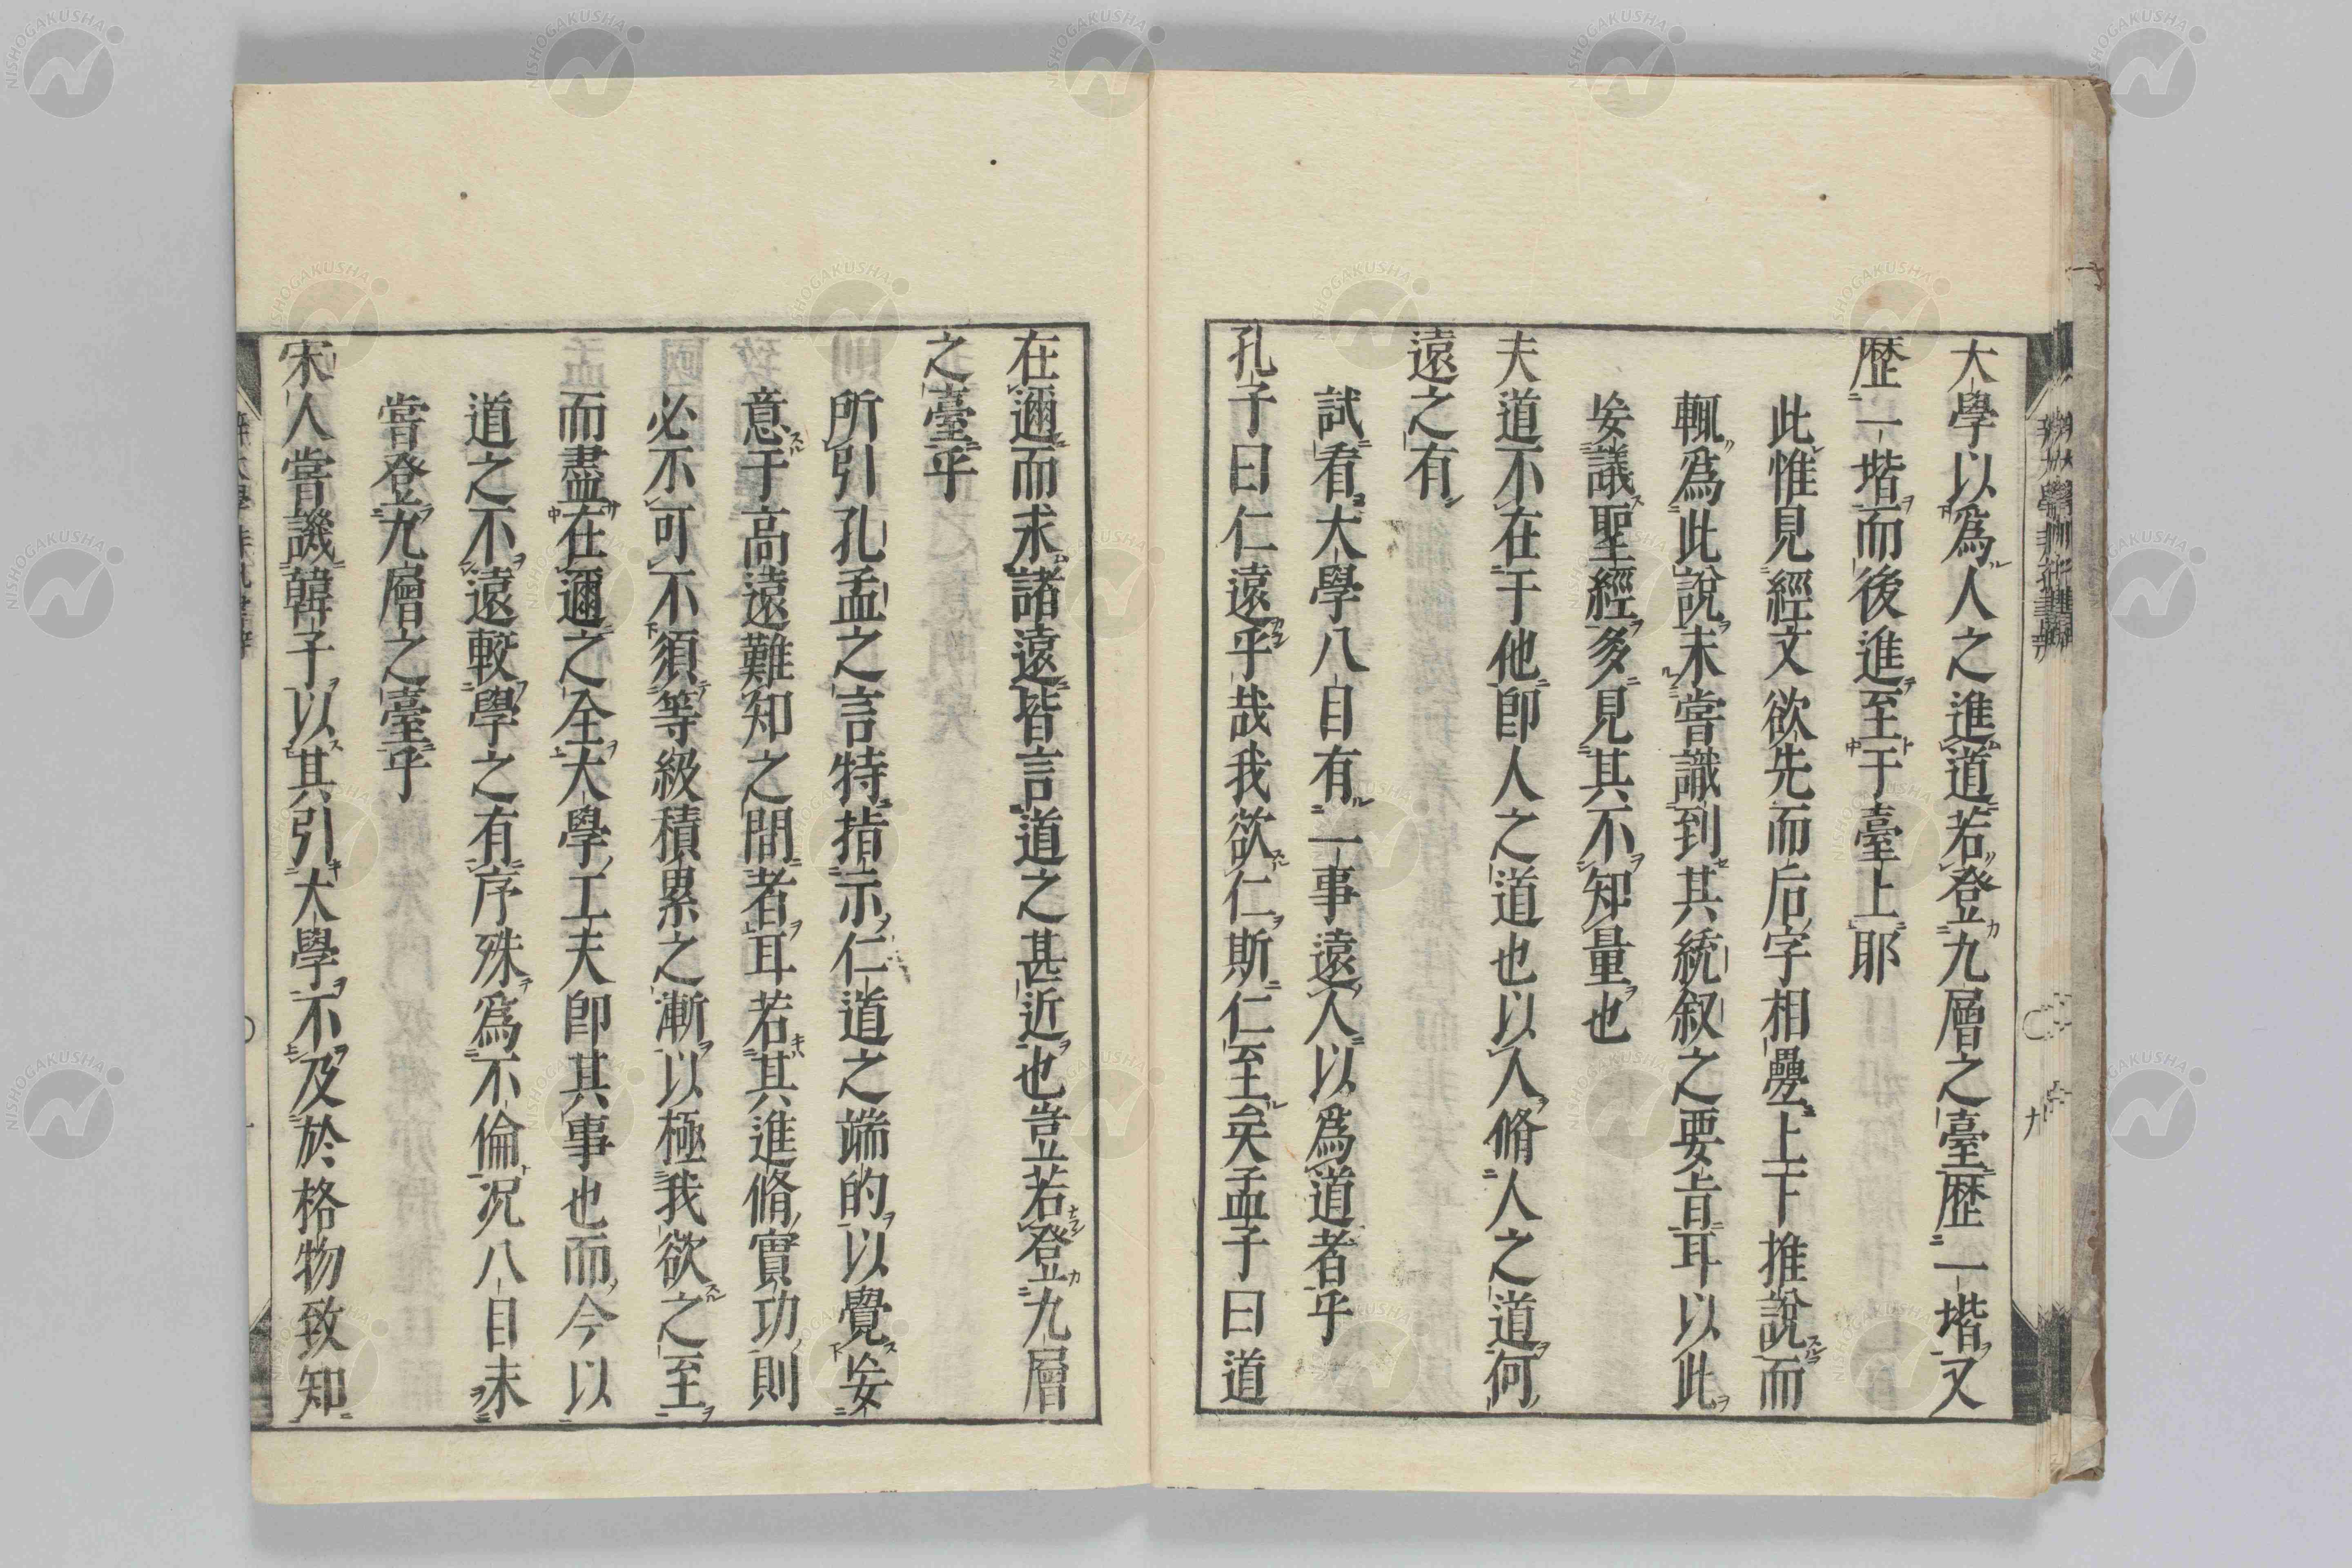 大學以爲人之進道若登九層之臺歴一堦又
歴一堦而後進至于臺上耶
此惟見經文欲先而后字相疊上下推說而
輒爲此說未嘗識到其統叙之要旨耳以此
妄議聖經多見其不知量也
夫道不在于他即人之道也以人脩人之道何
遠之有
試看大學八目有一事遠人以爲道者乎
孔子曰仁遠乎哉我欲仁斯仁至矣孟子曰道
在邇而求諸遠皆言道之甚近也豈若登九層
之臺乎
所引孔孟之言特指示仁道之端的以覺妄
意于高遠難知之間者耳若其進脩實功則
必不可不須等級積累之漸以極我欲之至
而盡在邇之全大學工夫即其事也而今以
道之不遠較學之有序殊爲不倫况八目未
嘗登九層之臺乎
宋人嘗譏韓子以其引大學不及於格物致知
NISHOGAKUSHA